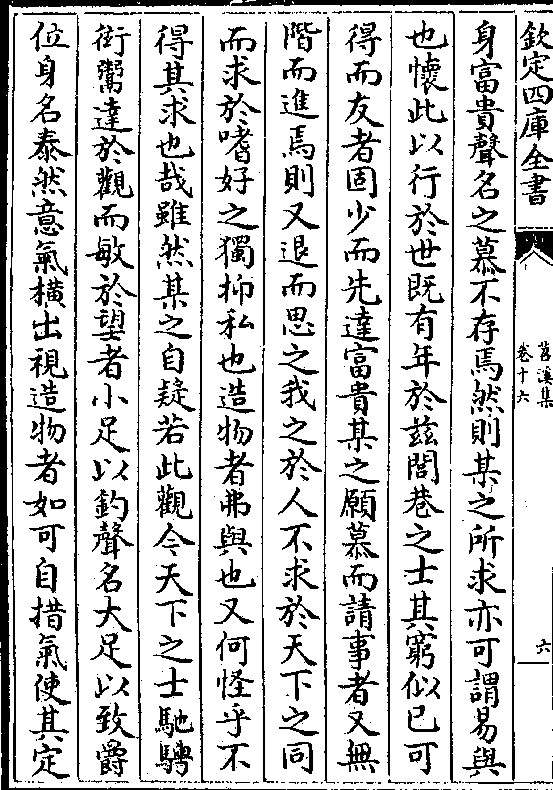 欽定四庫全書
苕溪集
卷十六
六
身富貴聲名之慕不存焉然則某之所求亦可謂易與
也懷此以行於世既有年於兹閭巷之士其窮似已可
得而友者固少而先達富貴某之願慕而請事者又無
階而進焉則又退而思之我之於人不求於天下之同
而求於嗜好之獨抑私也造物者弗與也又何怪乎不
得其求也哉雖然某之自疑若此觀今天下之士馳騁
衒鬻達於觀而敏於望者小足以釣聲名大足以致爵
位身名泰然意氣橫出視造物者如可自措氣使其定